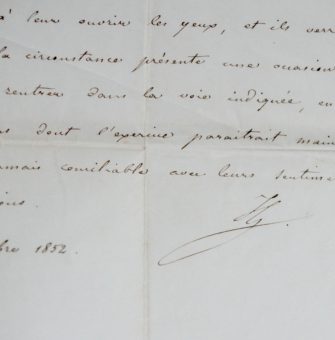 à leur ouvrir les yeux, et ils verr
la circonstance présente une occasion
rentrer dans la voie indiquée, en
s dont l'exercice paraitrait main
amais conciliable avec leurs sentime
ions.
bre 1852.